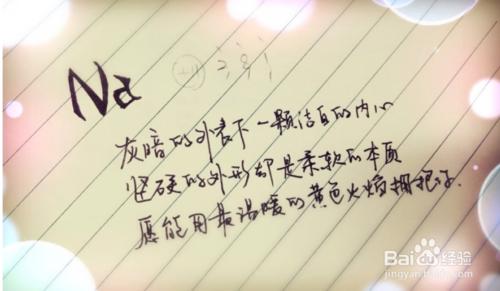 Na +11 2 8 1
灰暗的外表下一颗洁白的内心
坚硬的外形却是柔软的本质
愿能用最温暖的黄色火焰拥抱你
Baidu 经验
jingyan.baidu.com